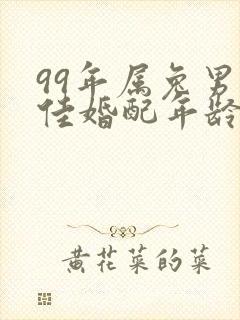 99年属兔男
佳婚配年龄
黄花菜的菜